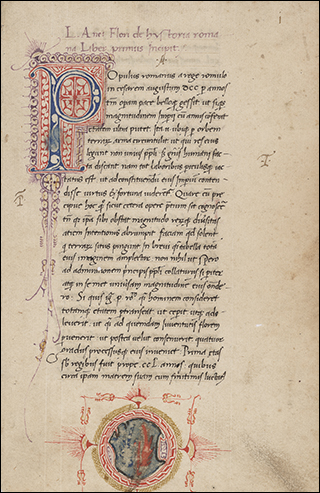 L. Anei Flori de hystoria roma
na Liber primus Incipit
Populus romanus a rege romulo
in cesarem augustum DCC p annos
tm opam pace belloq gessit ut siqs
magnitudinem Impij cu annis conferat
etatem vltra putet. Ita a vibus p orbem
terraru arma circuntulit ut qui res eius
legunt non unius ppli s gnis humani fac
ta discant. nam tot laboribus periculisq iac
tatus est ut ad constituendu eius Impiu conten
disse virtus & fortuna uideret. Quare cu pre
cipue hoc q sicut cetera opere ptium sit cognoscere
tn qr ipa sibi obstat magnitudo reruq diuersitas
aciem Intentionis abrumpit faciam qd solent
q terraru situs pingunt. In breui quasi tabella tota
eius imaginem amplectar non nihil ut spero
ad admirationem principis ppli collaturus si pariter
atq in se met uniuersam magnitudine eius onde
ro. Si quis ig p. ro. quasi hominem consideret
totamq etatem percenseat ut ceperit utq ado
leuerit. ut qsi ad quendam iuuentutis florem
puenerit ut postea velut consenuerit. quatuor
gradus processusq eius inueniet. Prima etas
sb regibus fuit prope. CCL annos. quibus
circa ipsam matrem suam cum finitimis luctatus